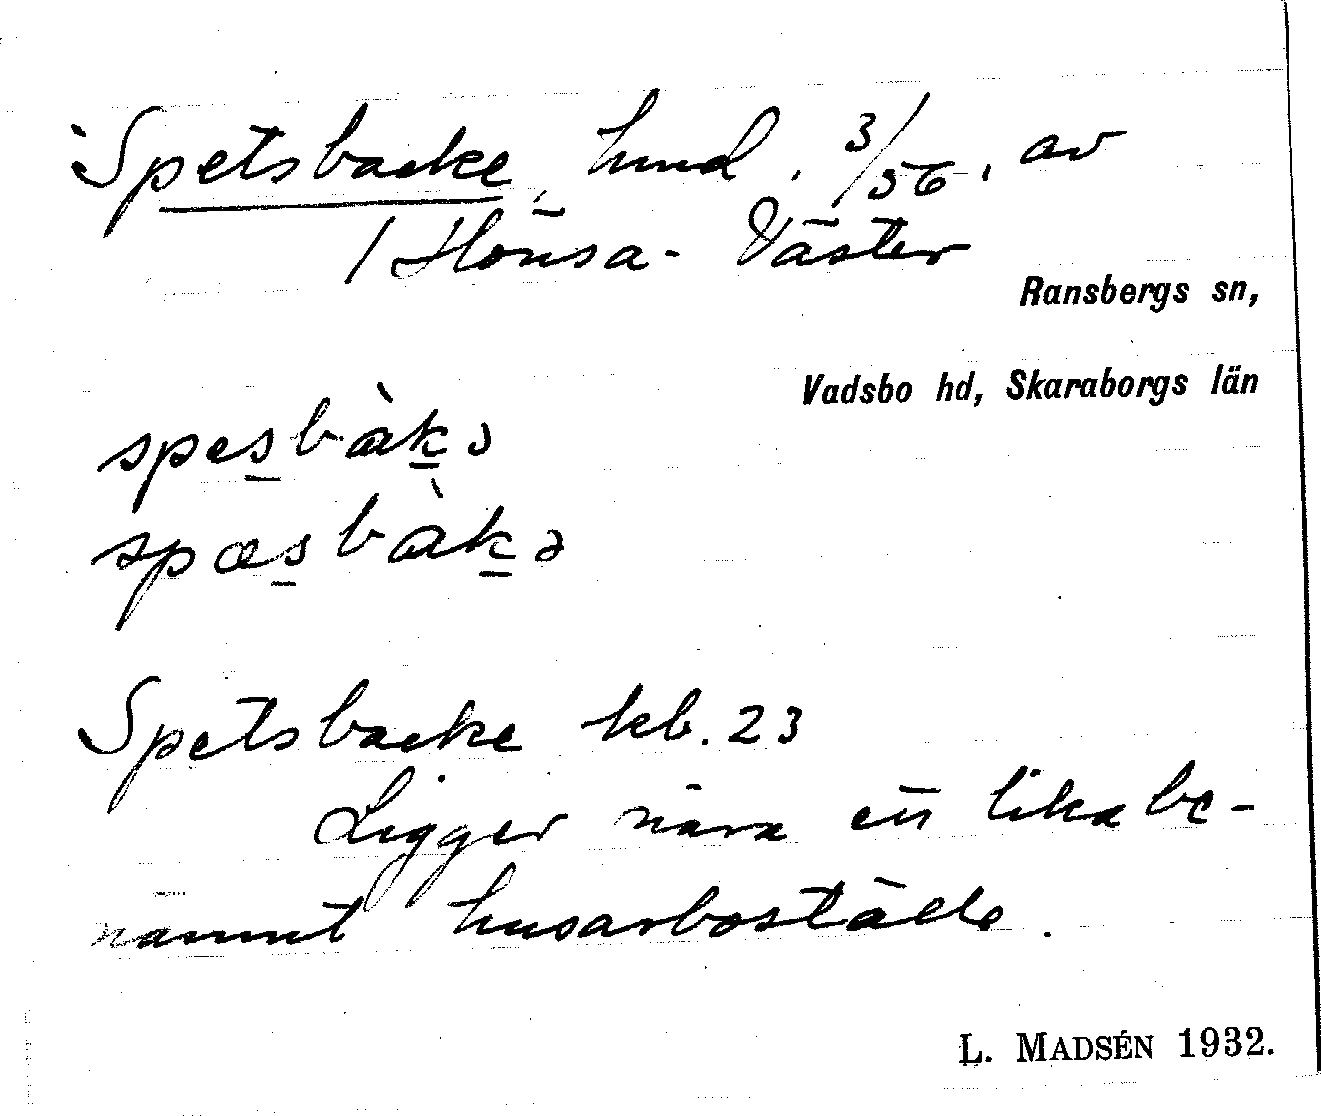 Spetsbacke, hmd. 3/56, av
1 Hönsa-Väster
Ransbergs sn,
Vadsbo hd, Skaraborgs län
spes̲bàk̲ə
spæs̲bàk̲ə
Spetsbacke kb. 23
Ligger nära ett likabe-
nämnt husarboställe.
L. MADSÉN 1932.